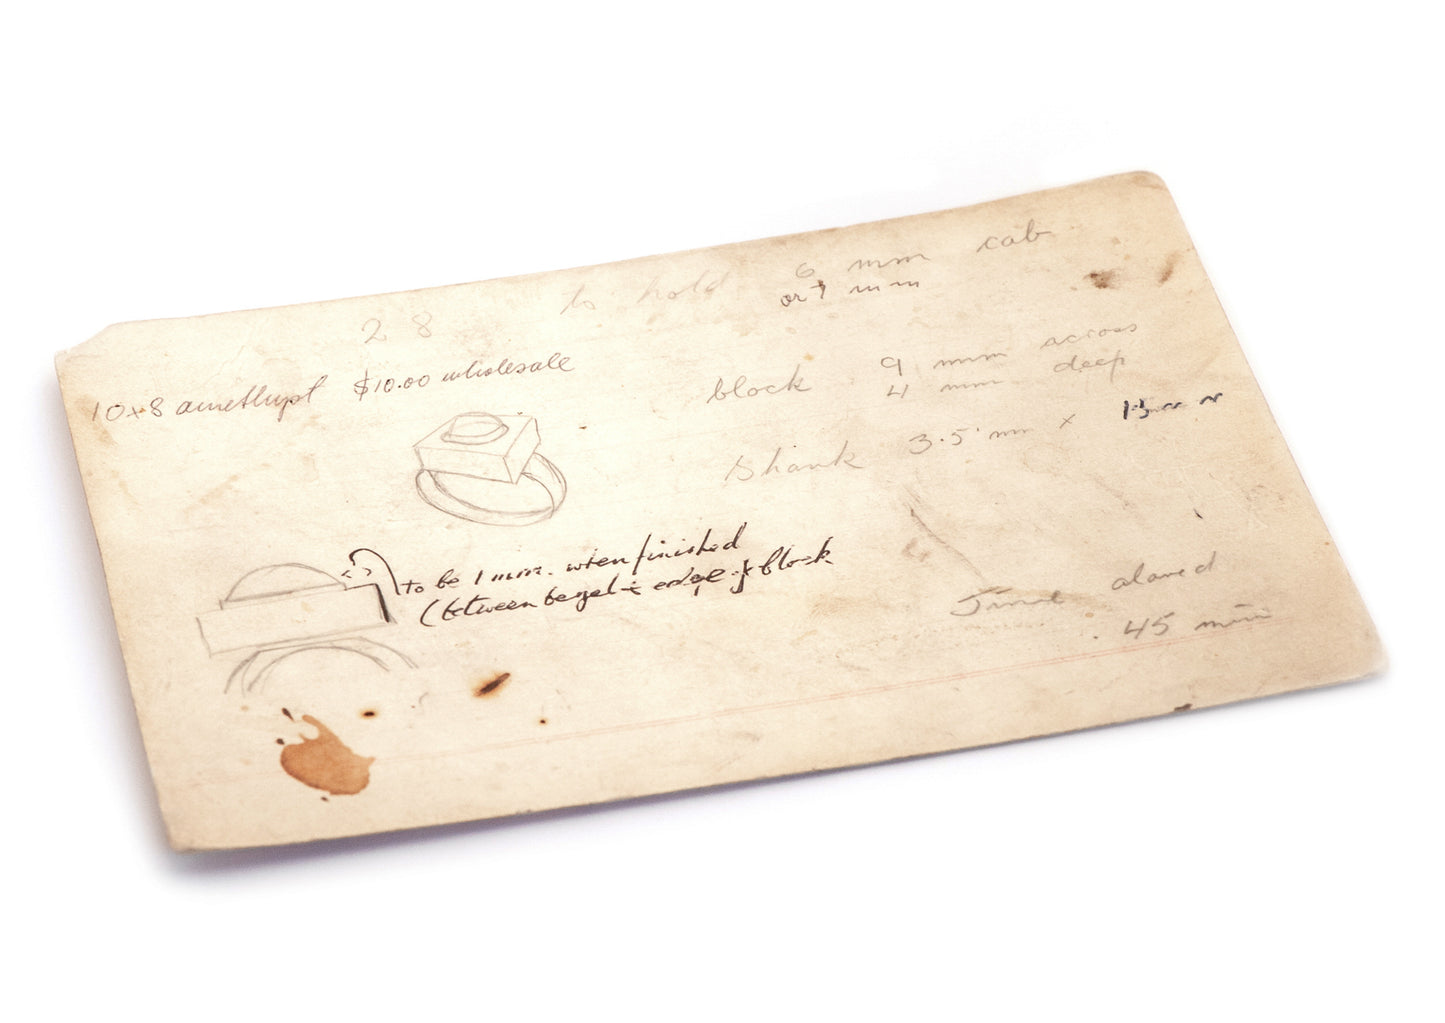 28 to hold 6 mm cab
or 7 mm
10x8 amethyst $10.00 wholesale
block 9 mm across
4 mm deep
Shank 3.5 mm x 1.5 mm
to be 1 mm. when finished
(between bezel + edge of block
Time alowed
45 min